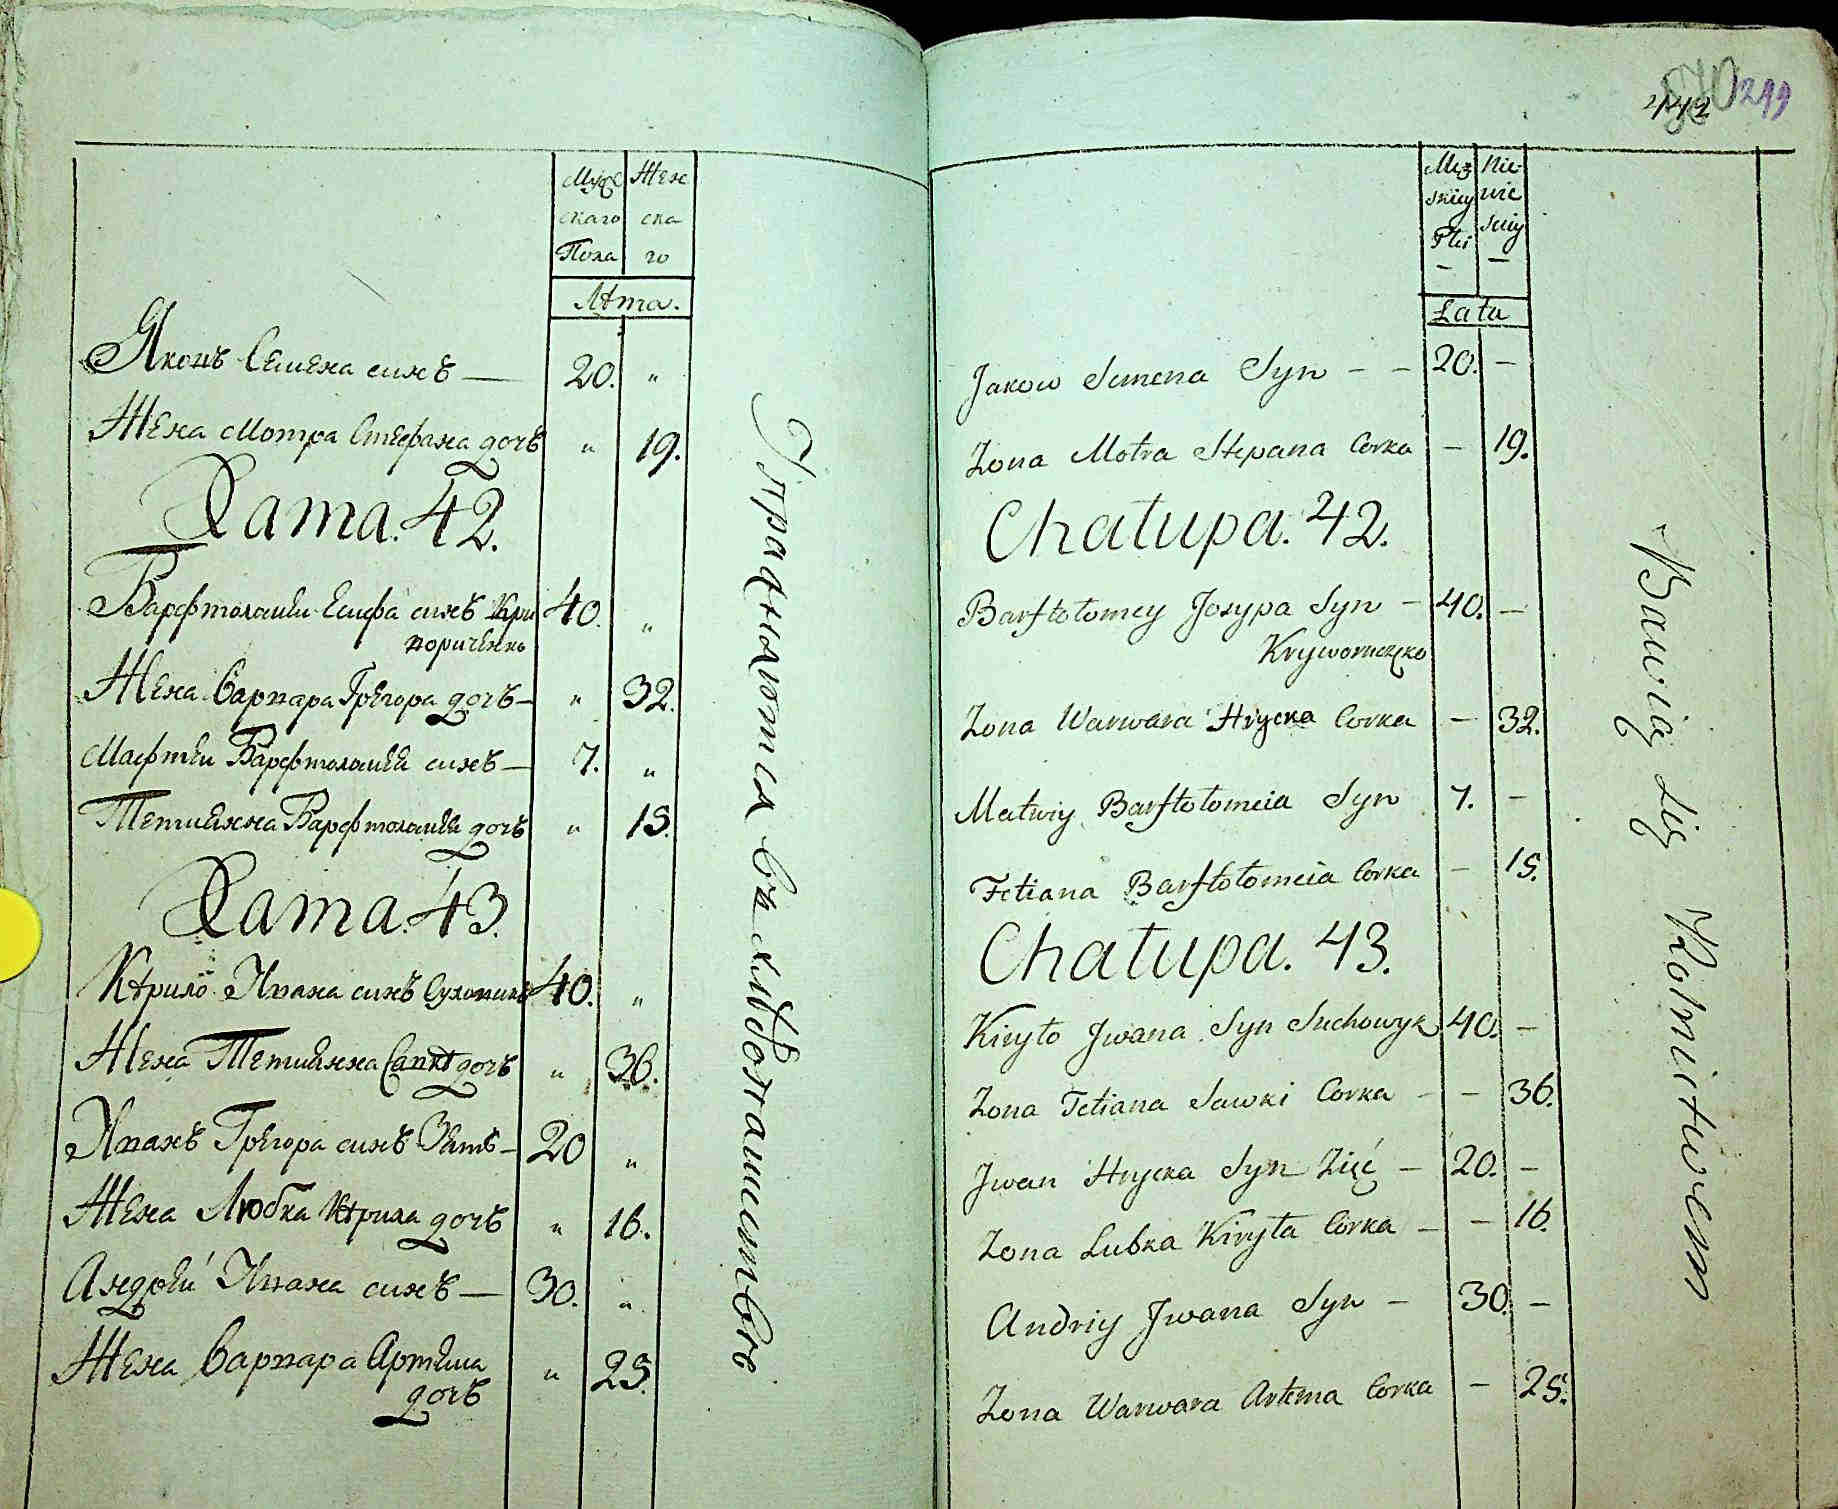 Муж Жен
скаго ска
Пола го
Лѣта.
Яковъ Семена синъ — 20. „
Жена Мотра Стефана дочъ „ 19.
Хата. 42.
Варфтоломѣи Есифа синъ Кри 40. „
воричѣнко
Жена Варвара Грегора дочъ — „ 32.
Мафтѣи Варфтоломѣя синъ — 7. „
Тетиянна Варфтоломѣя дочъ „ 15.
Хата. 43.
Кѣрило Ивана синъ Суховикъ 40. „
Жена Тетиянна Савкѣ дочъ „ 36.
Иванъ Грегора синъ Зять — 20 „
Жена Любка Кѣрила дочъ „ 16.
Андрѣй Ивана синъ — 30. „
Жена Варвара Артѣма „ 25.
дочъ
Упражняются вхлѣбопашество
442 299
Męz Nie
skiey wie
Płci sciey
— —
Lata
Jakow Semena Syn - - 20. —
Zona Motra Stepana Corka — 19.
Chałupa. 42.
Barftołomey Josypa Syn - 40. —
Kryworuczko
Zona Warwara Hrycka Corka — 32.
Matwiy Barftołomeia Syn 7. —
Tetiana Barftołomeia Corka — 15.
Chałupa. 43.
Kiryło Jwana Syn Suchowyk 40. —
Zona Tetiana Sawki Corka - — 36.
Jwan Hrycka Syn Zięć — 20. —
Zona Lubka Kiryła Corka — — 16.
Andriy Jwana Syn — 30. —
Zona Warwara Artema Corka — 25.
Bawią się Rolnictwem